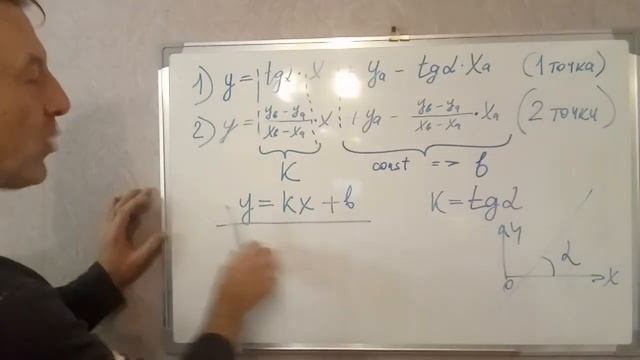 1) y = tgα · x + ya - tgα · xa (1 точка)
2) y = (yв - ya)/(xв - xa) · x + ya - (yв - ya)/(xв - xa) · xa (2 точки)
K const => b
y = kx + b K = tgα
y
α
0 x